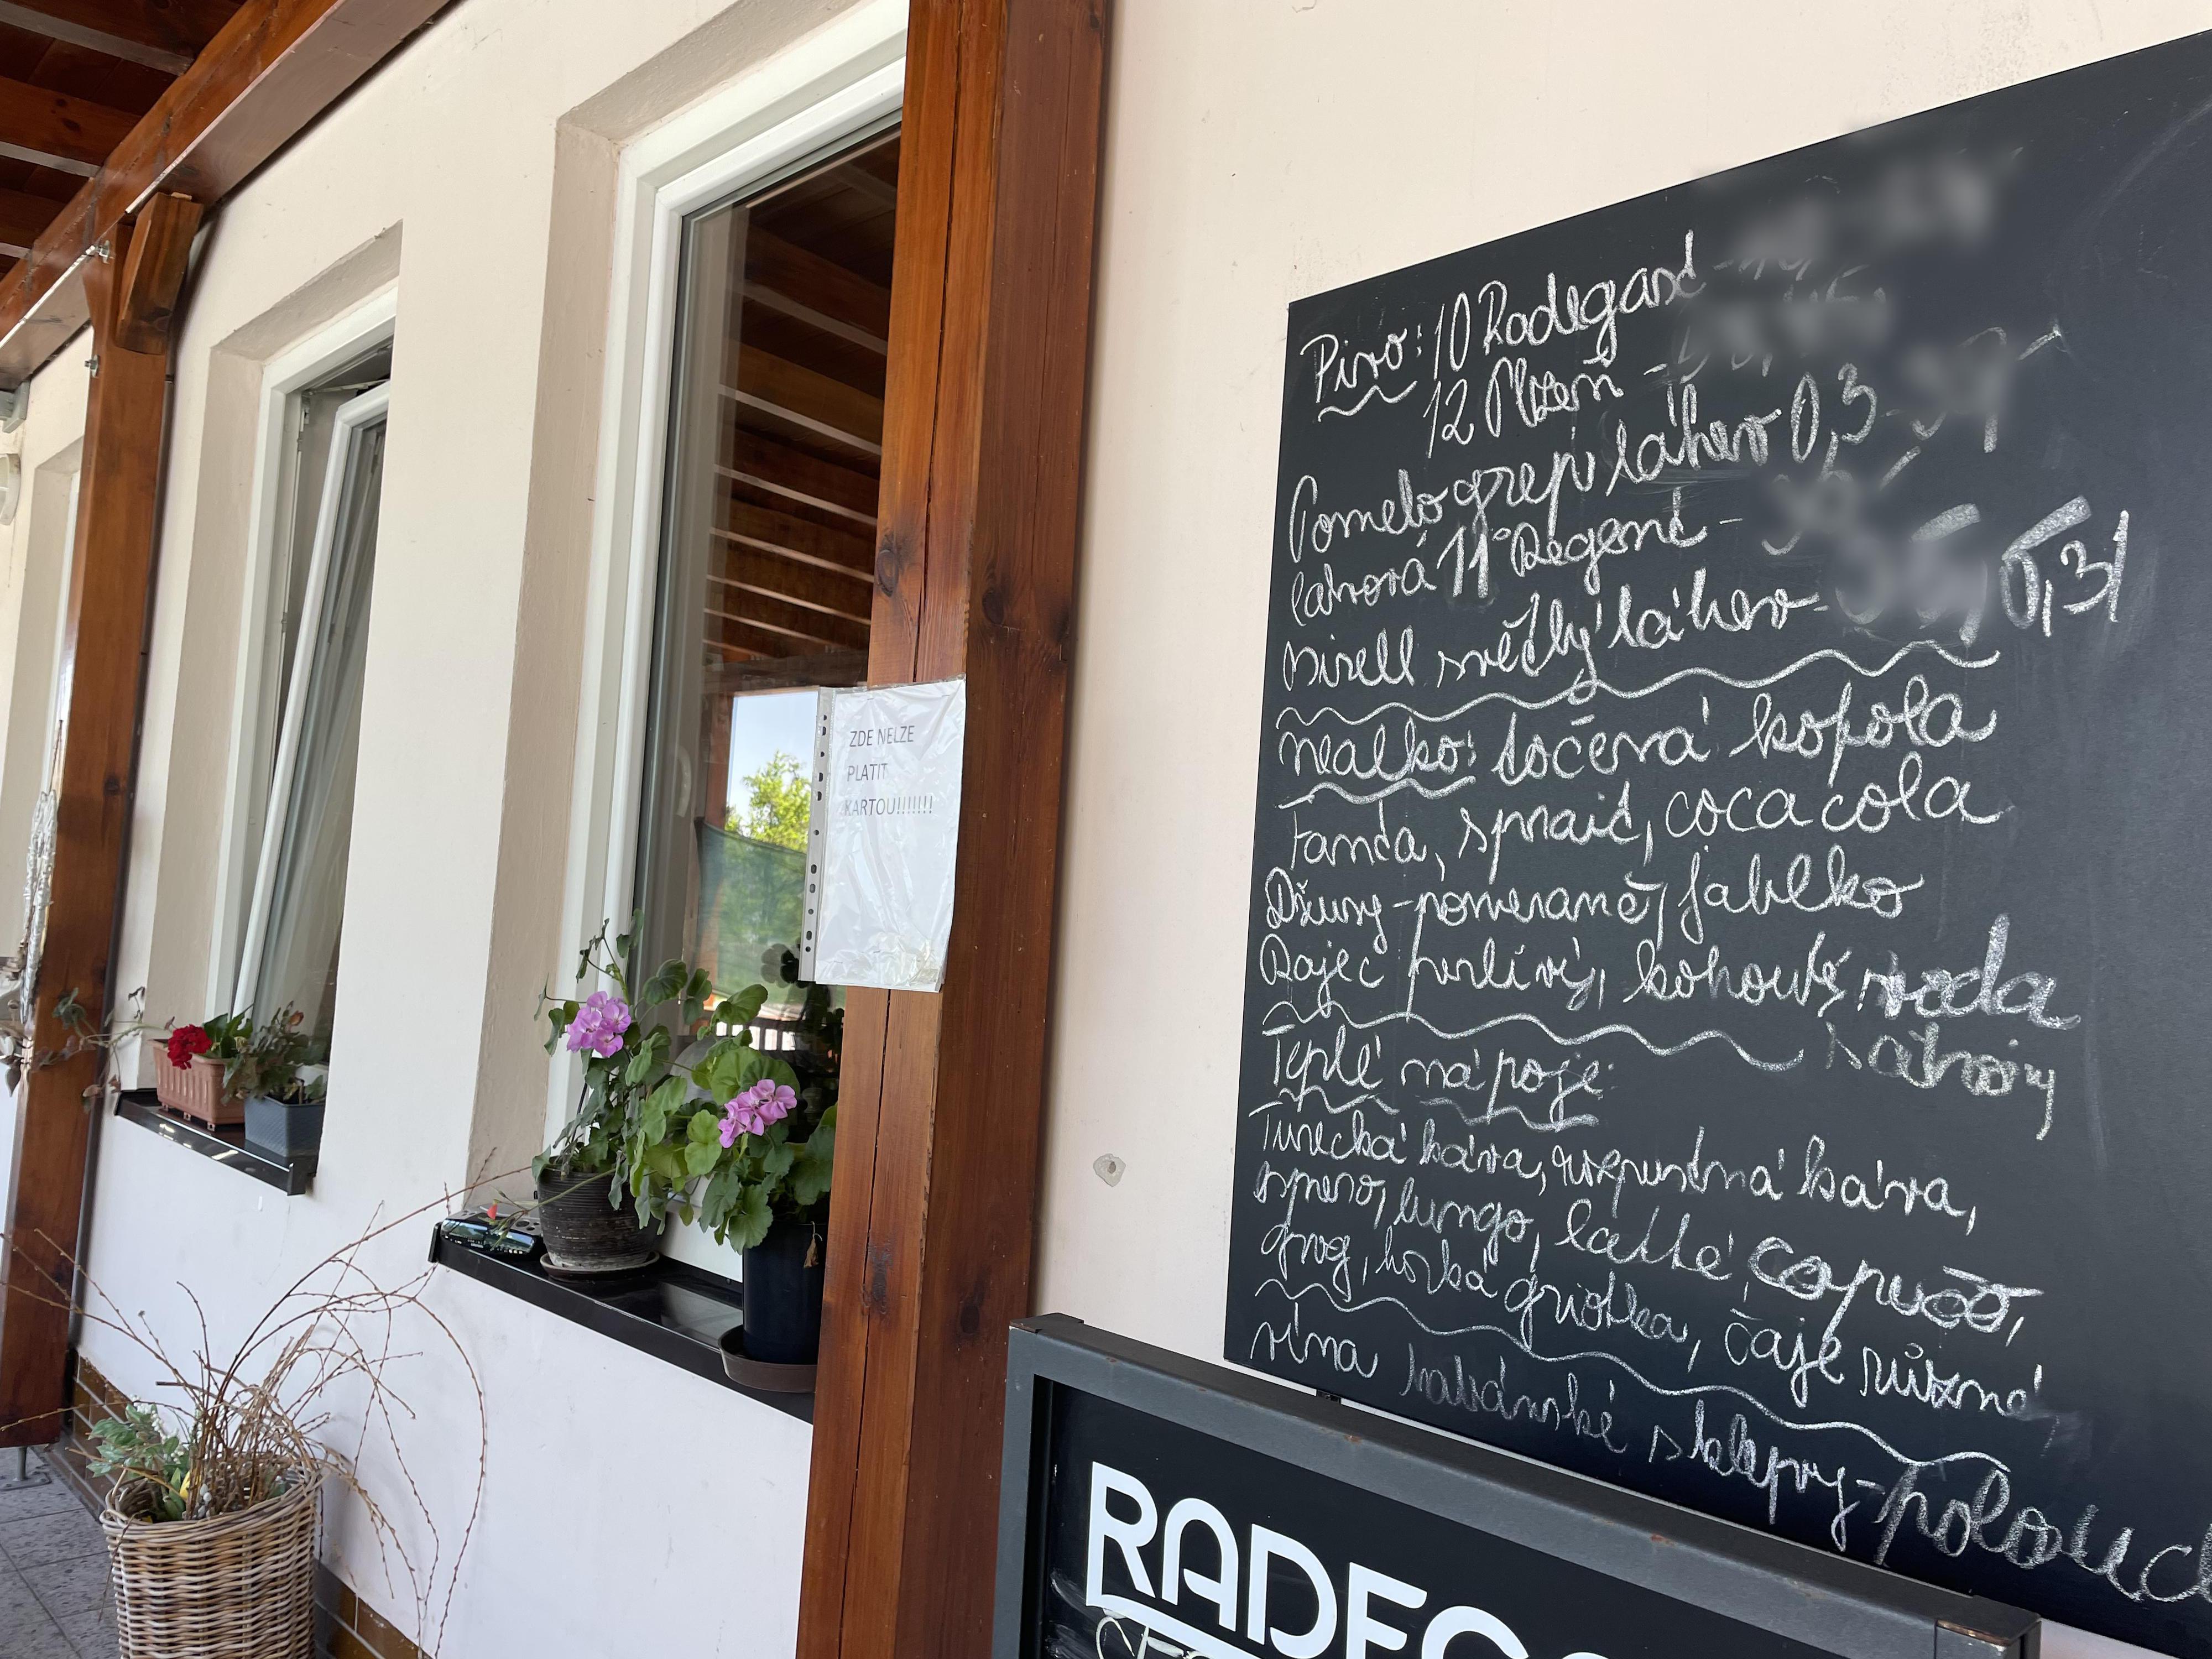 ZDE NELZE
PLATIT
KARTOU!!!!!!!
Pivo: 10 Radegast -
12 Plzeň -
Pomelo grep láhev 0,3
lahvová 11° Regent -
birell světlý láhev - 0,3l
nealko: točená kofola
Fanta, sprait, coca cola
Džusy - pomeranč, jablko
Rajec perlivý, kohout. voda
Teplé nápoje:
Turecká káva, rozpustná káva,
lungo, latté, capučo,
grog, horká griotka, čaje různé
vína habánské sklepy -
RADEG